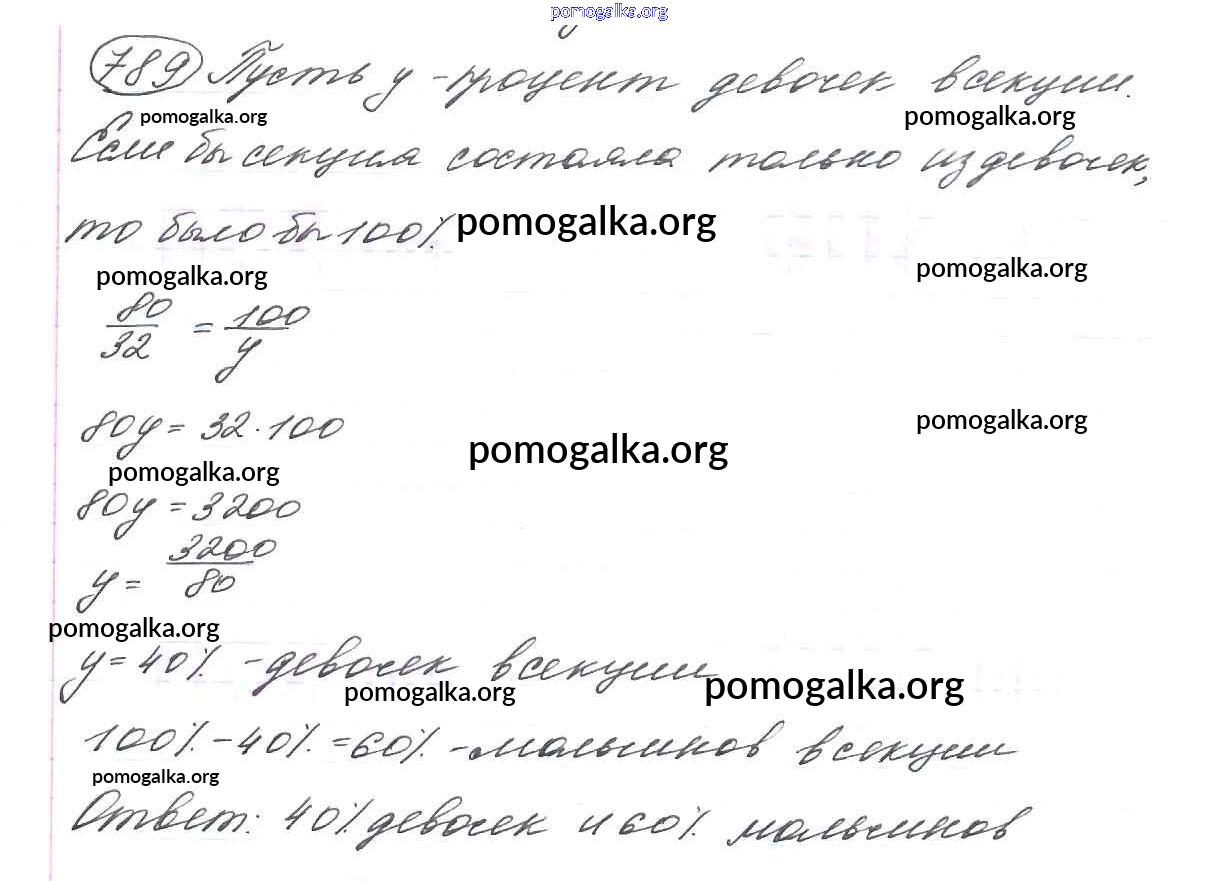 pomogalka.org
789 Пусть y - процент девочек в секции.
pomogalka.org pomogalka.org
Если бы секция состояла только из девочек,
то было бы 100%. pomogalka.org
pomogalka.org pomogalka.org
80/32 = 100/y
80y = 32 · 100 pomogalka.org
pomogalka.org pomogalka.org
80y = 3200
y = 3200/80
pomogalka.org
y = 40% - девочек в секции
pomogalka.org pomogalka.org
100% - 40% = 60% - мальчиков в секции
pomogalka.org
Ответ: 40% девочек и 60% мальчиков